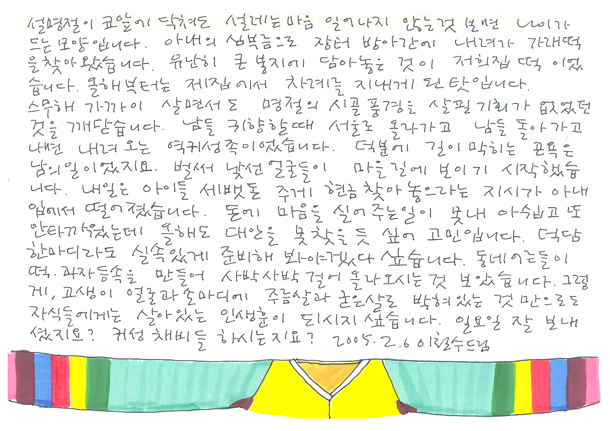 설명절이 코앞에 닥쳐도 설레는 마음 일어나지 않는것 보면 나이가
드는 모양입니다. 아내의 심부름으로 장터 방아간에 내려가 가래떡
을 찾아왔습니다. 유난히 큰 봉지에 담아놓은 것이 저희집 떡 이었
습니다. 올해부터는 제집에서 차례를 지내게 된 탓입니다.
스무해 가까이 살면서도 명절의 시골 풍경을 살필 기회가 없었던
것을 깨닫습니다. 남들 귀향할때 서울로 올라가고 남들 돌아가고
나면 내려 오는 역귀성족이었습니다. 덕분에 길이 막히는 곤욕은
남의 일이었지요. 벌써 낯선 얼굴들이 마을길에 보이기 시작했습
니다. 내일은 아이들 세뱃돈 주게 현금 찾아 놓으라는 지시가 아내
입에서 떨어졌습니다. 돈에 마음을 실어 주는일이 못내 아쉽고 또
안타까웠는데 올해도 대안을 못찾을 듯 싶어 고민입니다. 덕담
한마디라도 실속있게 준비해 봐야겠다 싶습니다. 동네 어른들이
떡. 과자등속을 만들어 사박사박 걸어 올라오시는 것 보았습니다. 그렇
게, 고생이 얼굴과 손마디에 주름살과 굳은살로 박혀있는 것 만으로도
자식들에게는 살아있는 인생훈이 되시지 싶습니다. 일요일 잘 보내
셨지요? 귀성 채비들 하시는지요? 2005.2.6 이철수드림